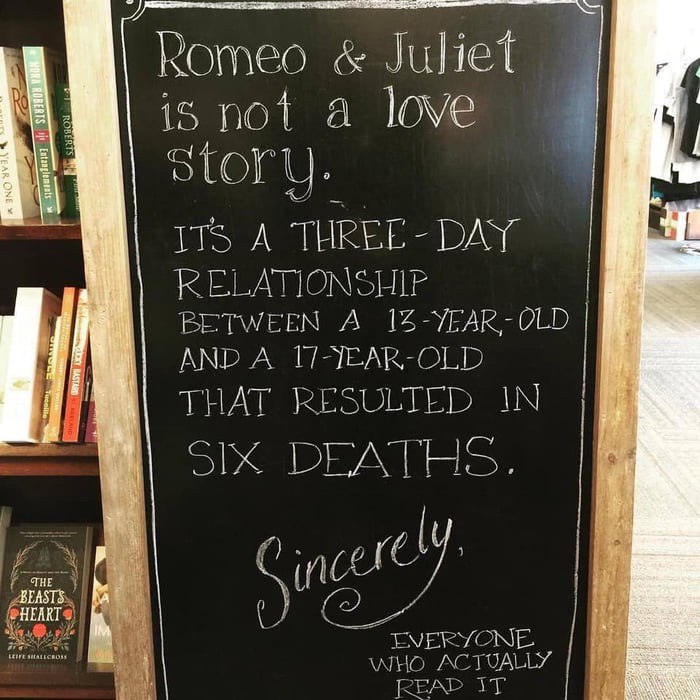 Romeo & Juliet
is not a love
story.
IT'S A THREE-DAY
RELATIONSHIP
BETWEEN A 13-YEAR-OLD
AND A 17-YEAR-OLD
THAT RESULTED IN
SIX DEATHS.
Sincerely,
EVERYONE
WHO ACTUALLY
READ IT
YEAR ONE
NORA ROBERTS
Entanglements
ROBERTS
THE
BEAST'S
HEART
LEIFE SHALLCROSS